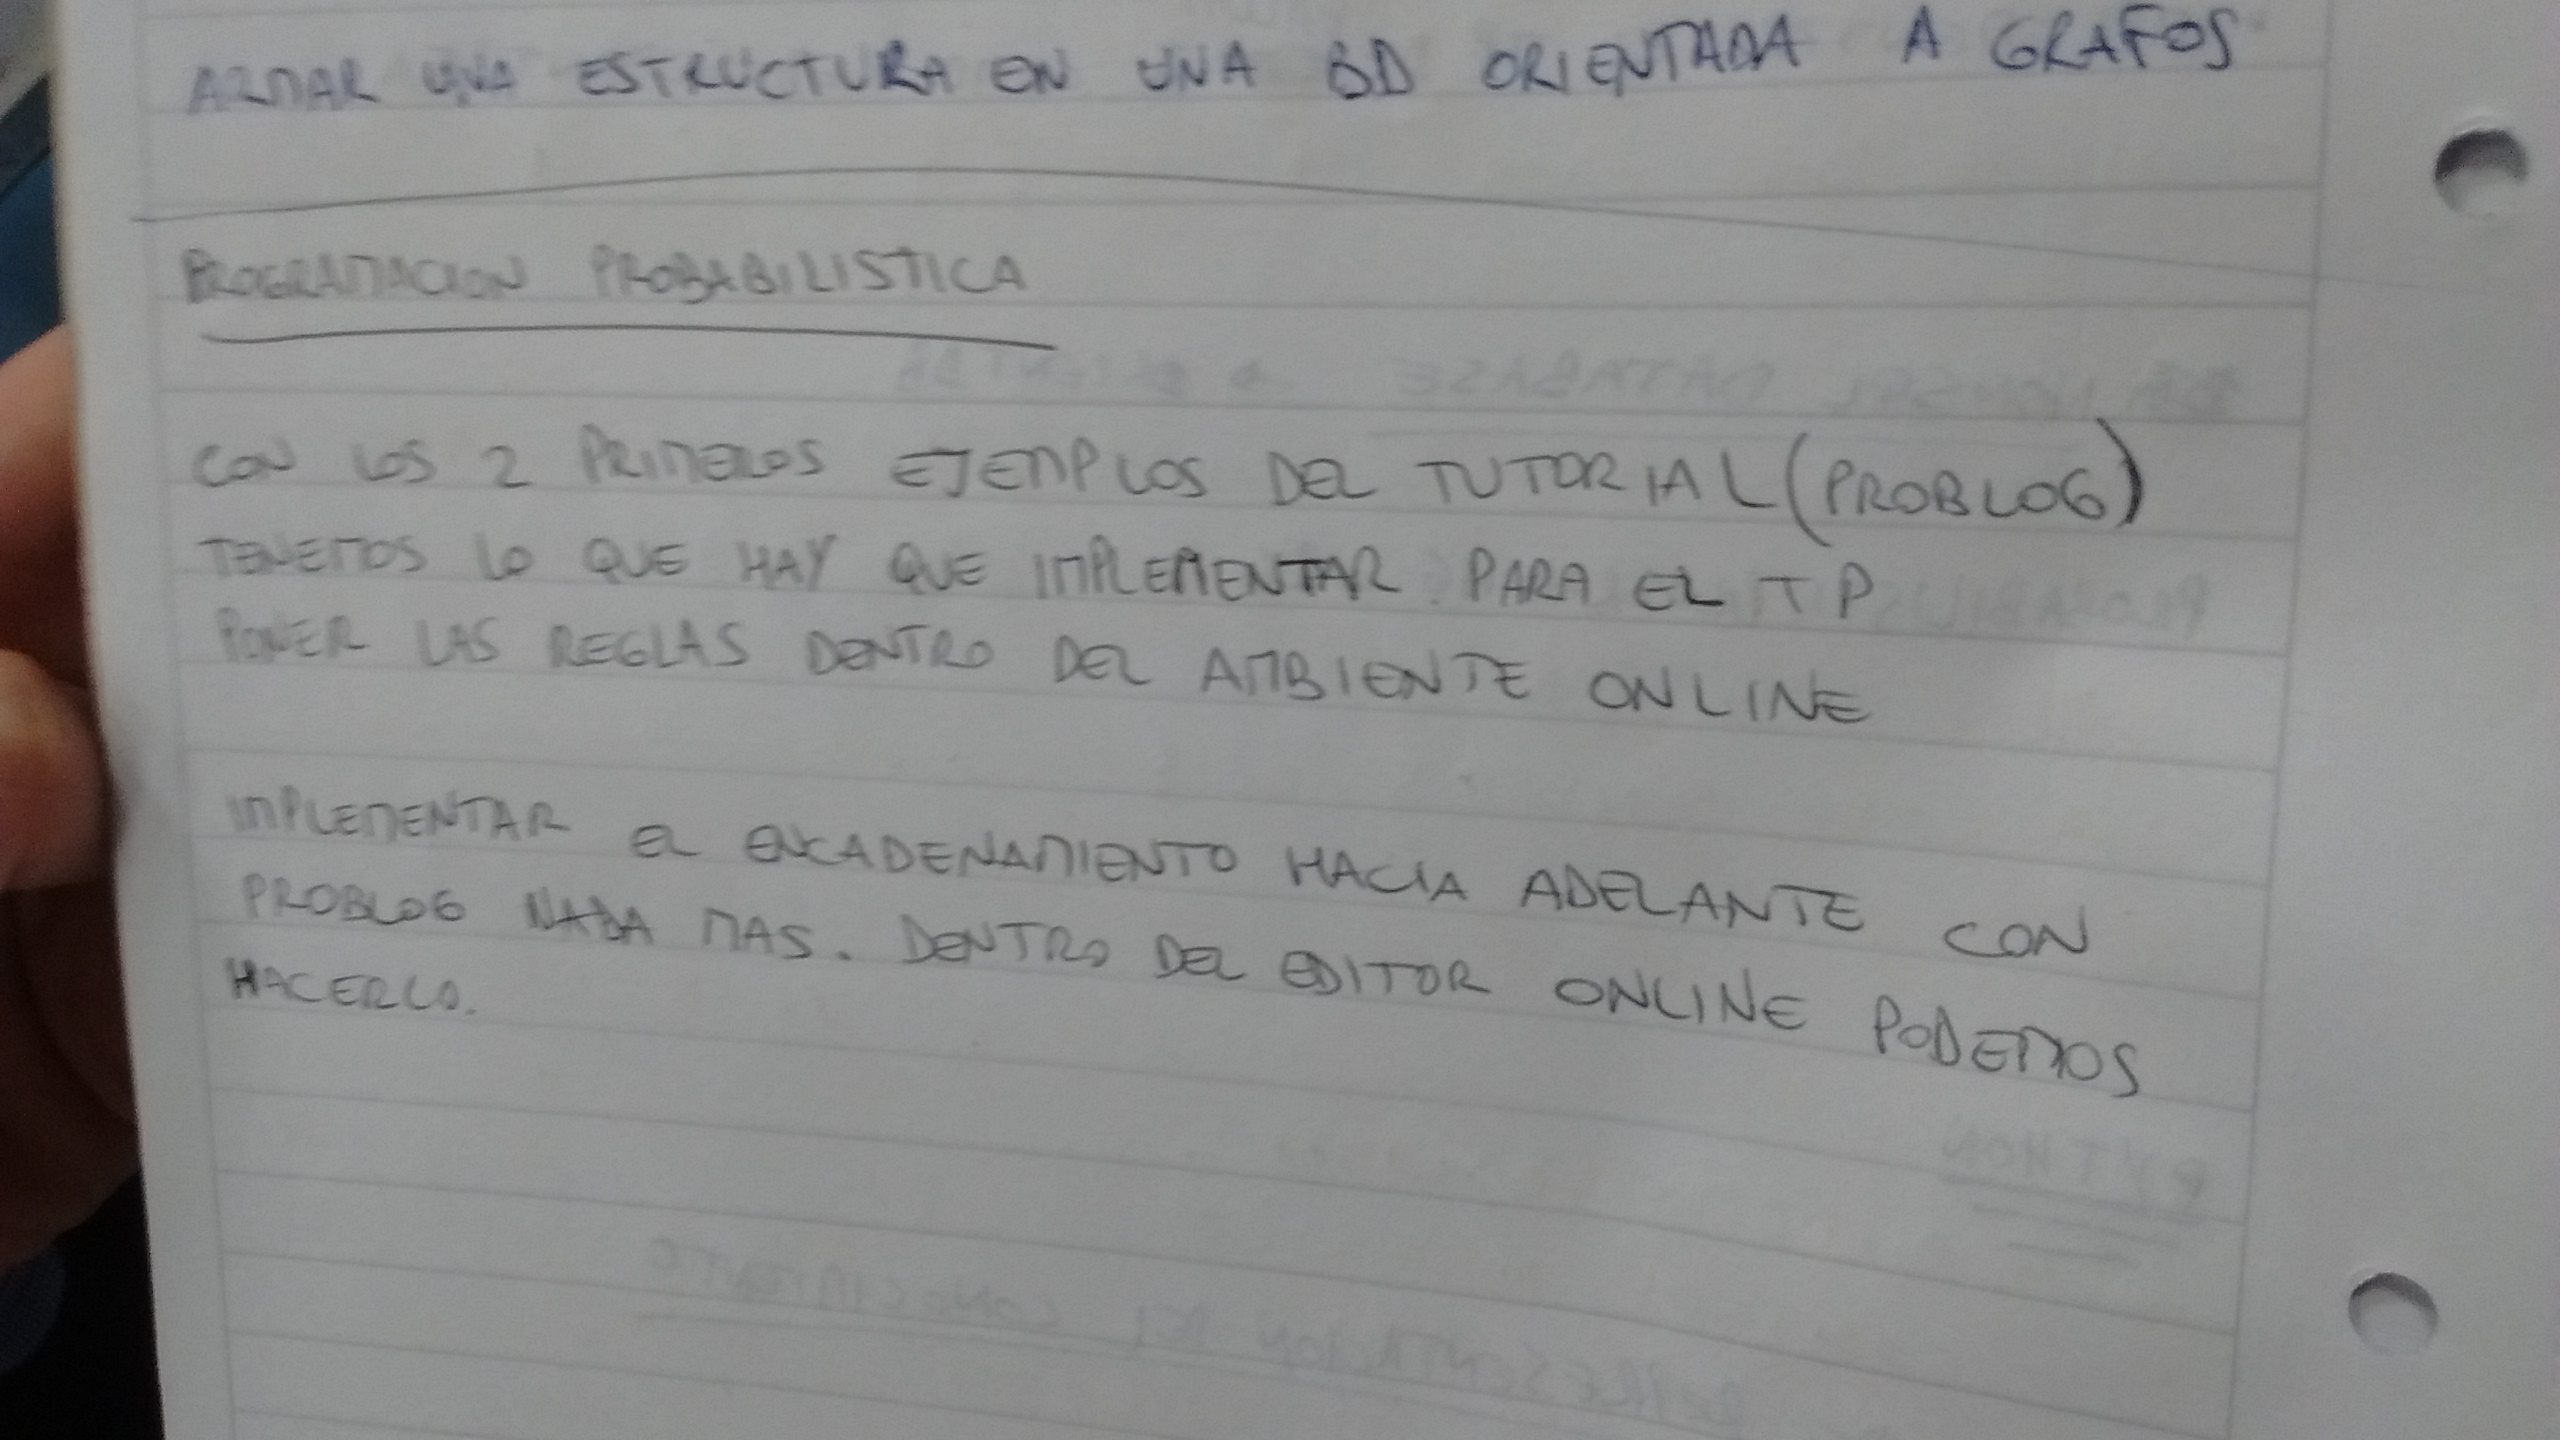 ARMAR UNA ESTRUCTURA EN UNA BD ORIENTADA A GRAFOS
PROGRAMACION PROBABILISTICA
CON LOS 2 PRIMEROS EJEMPLOS DEL TUTORIAL (PROBLOG)
TENEMOS LO QUE HAY QUE IMPLEMENTAR PARA EL TP
PONER LAS REGLAS DENTRO DEL AMBIENTE ONLINE
IMPLEMENTAR EL ENCADENAMIENTO HACIA ADELANTE CON
PROBLOG NADA MAS. DENTRO DEL EDITOR ONLINE PODEMOS
HACERLO.